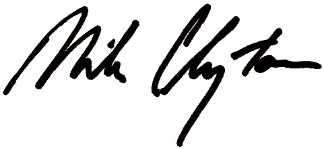 Mike Clayton